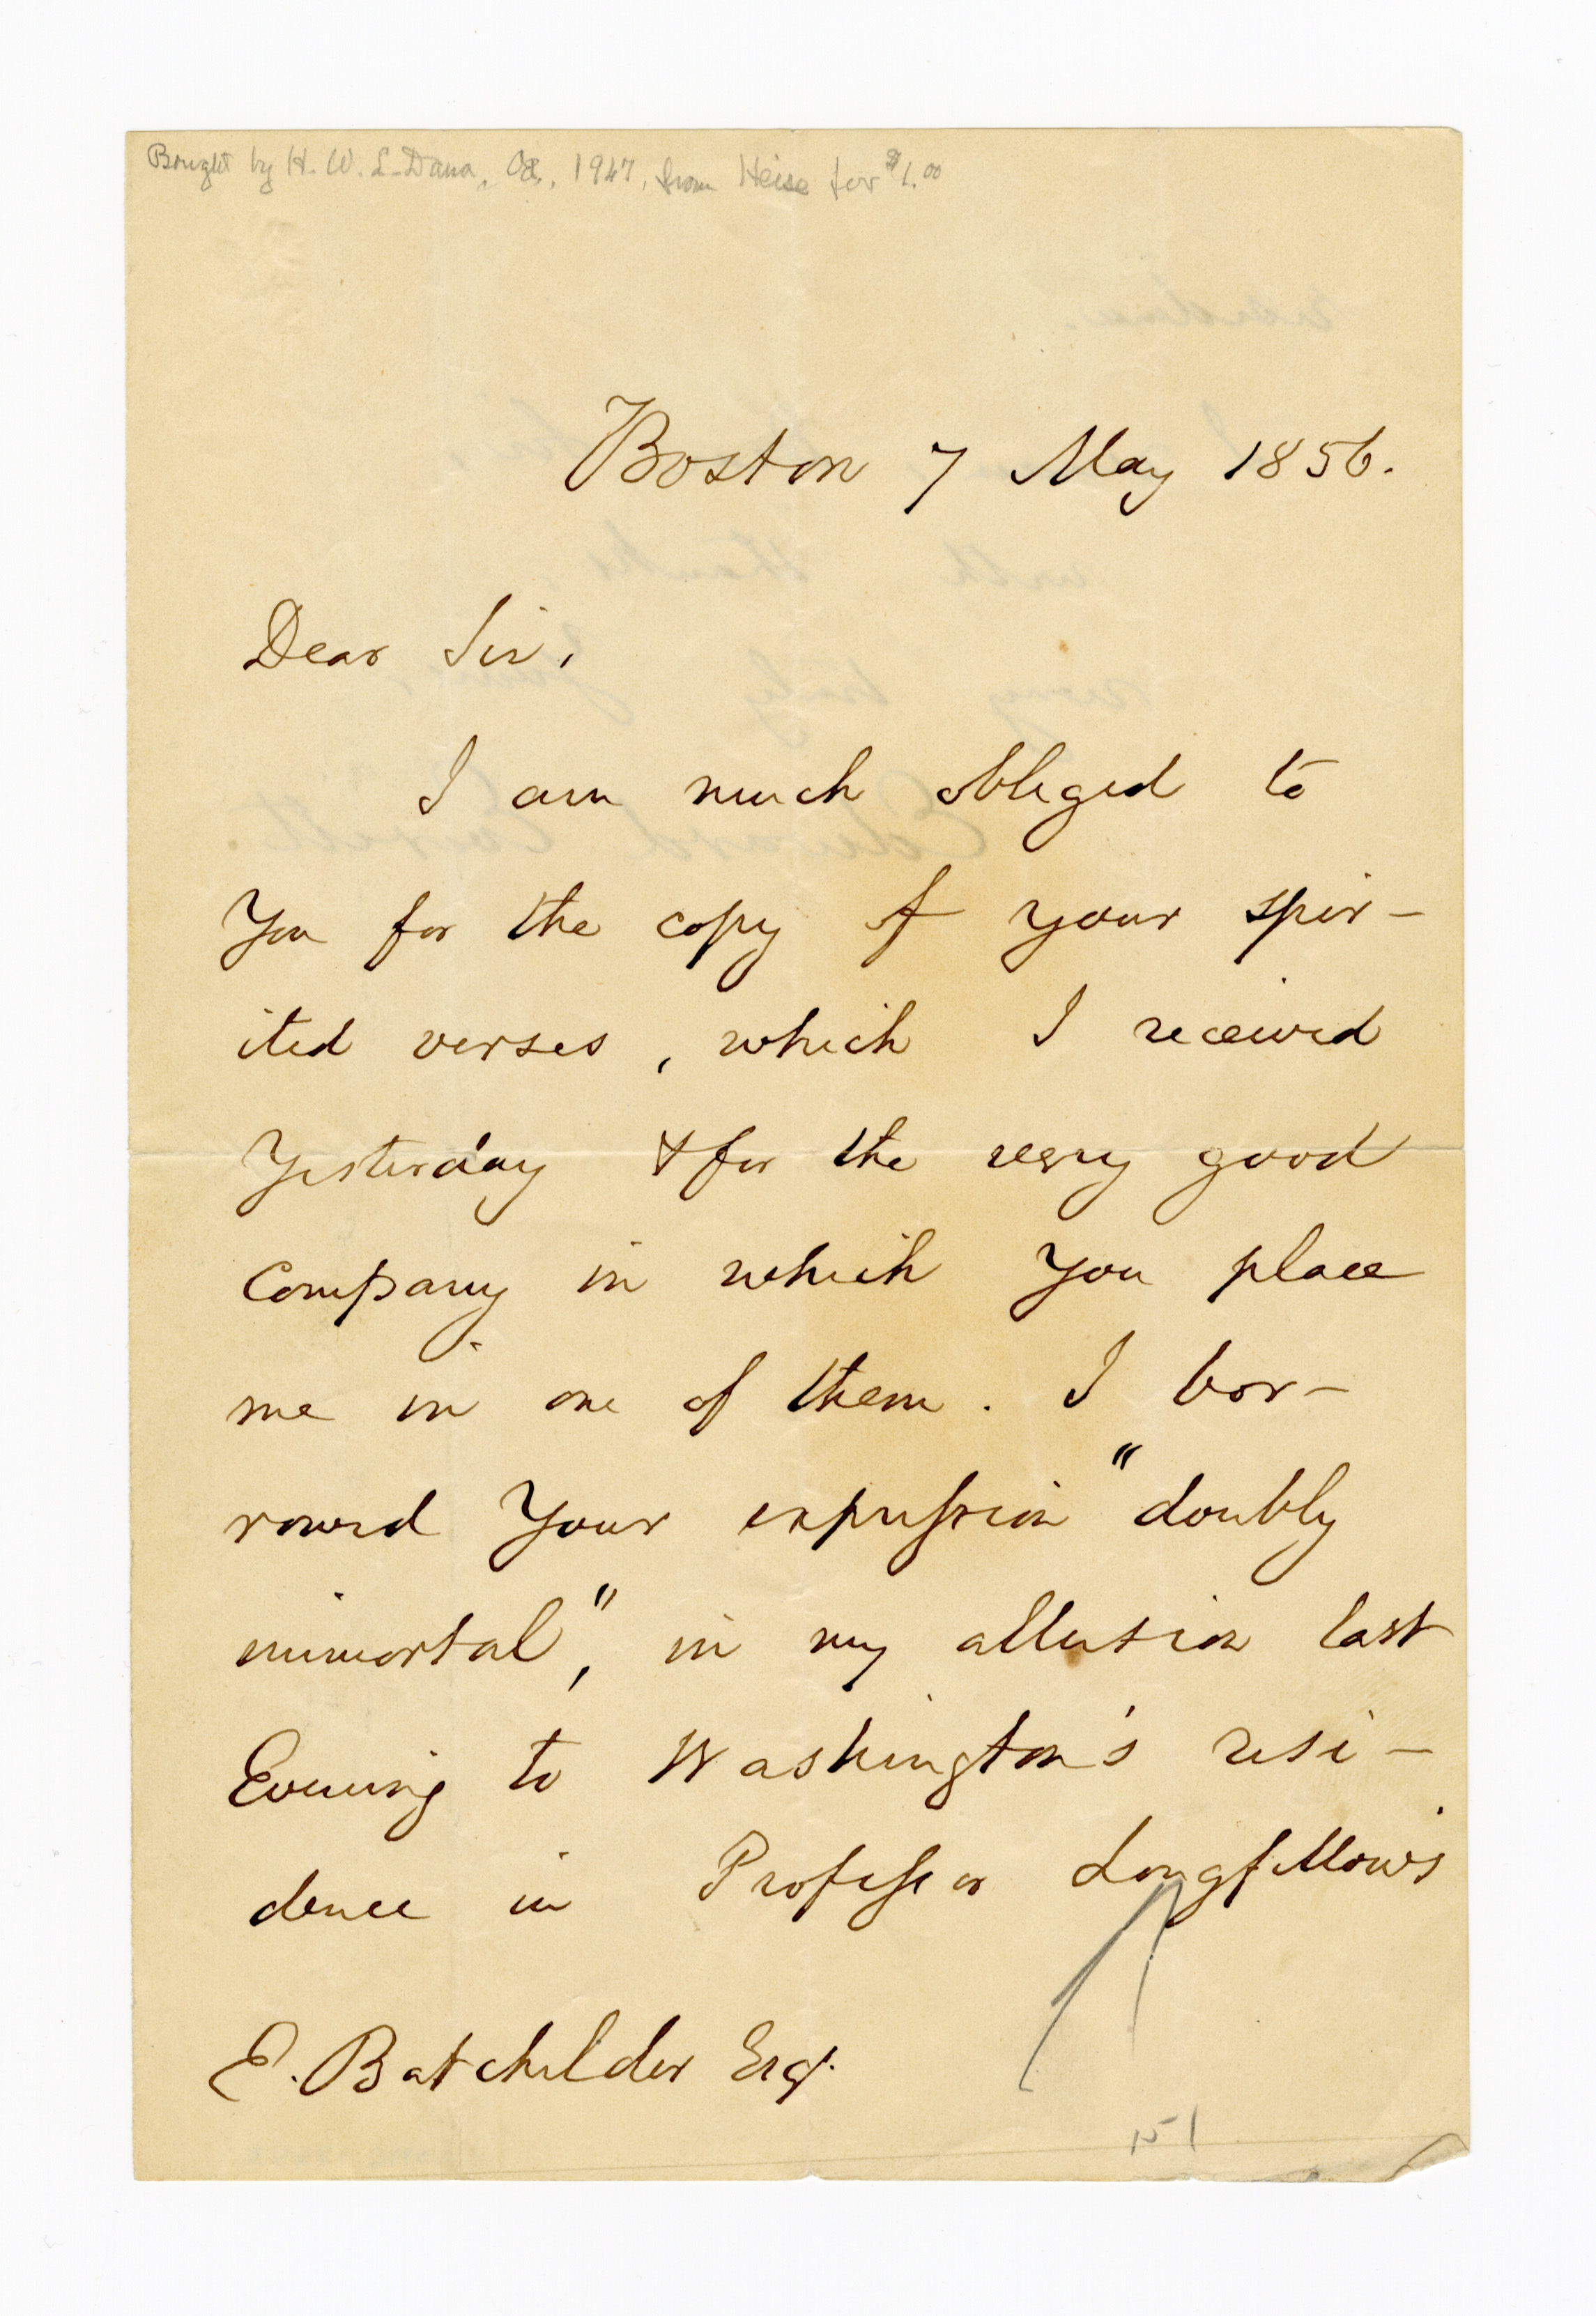 Bought by H. W. L. Dana, Oct., 1947, from Heise for $1.00
Boston 7 May 1856.
Dear Sir,
I am much obliged to
you for the copy of your spir-
ited verses, which I received
yesterday & for the very good
company in which you place
me in one of them. I bor-
rowed your expression "doubly
immortal," in my allusion last
Evening to Washington's resi-
dence in Professor Longfellow's
E. Batchelder Esq.
151